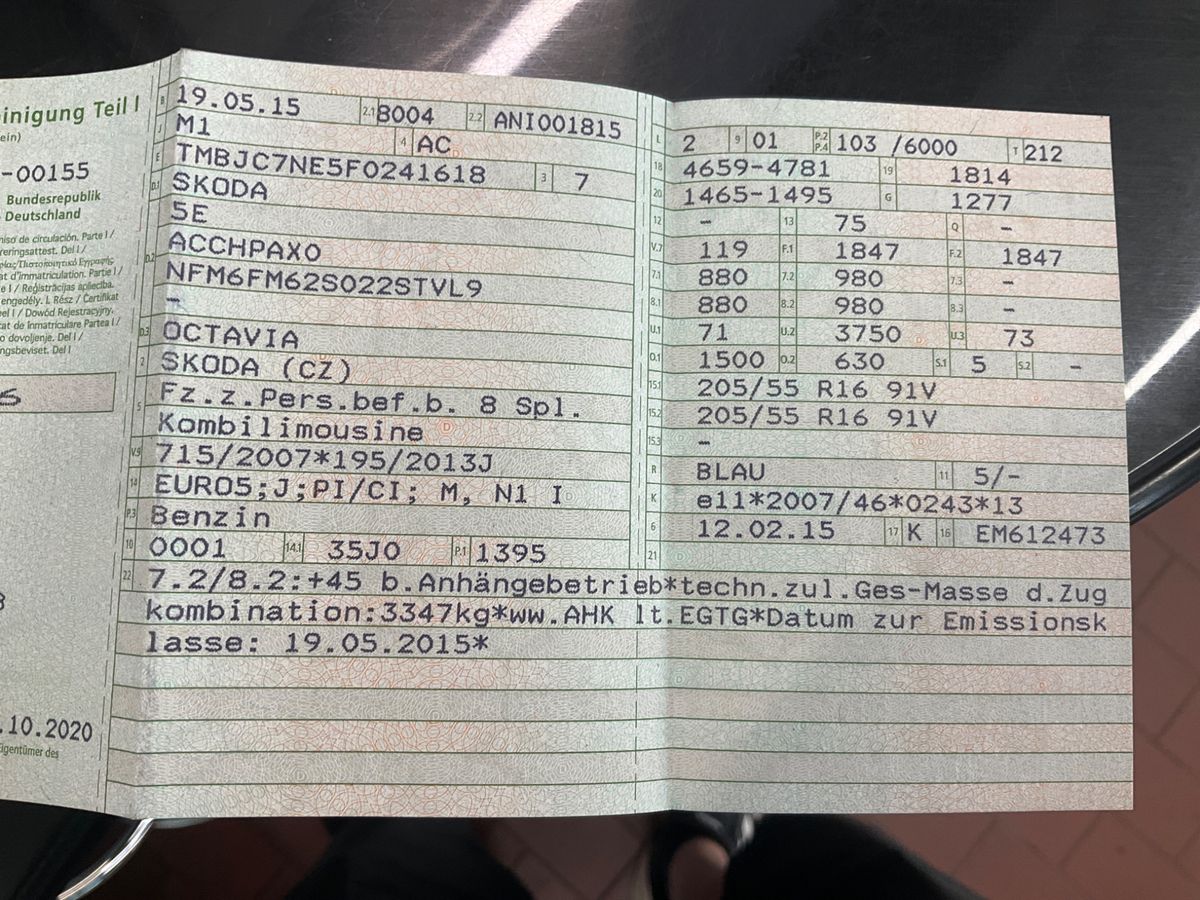 inigung Teil I
ein)
-00155
Bundesrepublik
Deutschland
niso de circulación. Parte I /
reringsattest. Del I /
at d'immatriculation. Partie I /
e I / Reģistrācijas apliecība.
engedély. I. Rész / Ċertifikat
eel I / Dowód Rejestracyjny.
cat de înmatriculare Partea I /
o dovoljenje. Del I /
ngsbeviset. Del I
.10.2020
igentümer des
B 19.05.15 2.1 8004 2.2 ANI001815
J M1 4 AC
E TMBJC7NE5F0241618 3 7
D.1 SKODA
5E
D.2 ACCHPAX0
NFM6FM62S022STVL9
-
D.3 OCTAVIA
2 SKODA (CZ)
5 Fz.z.Pers.bef.b. 8 Spl.
Kombilimousine
V.9 715/2007*195/2013J
14 EURO5;J;PI/CI; M, N1 I
P.3 Benzin
10 0001 14.1 35J0 P.1 1395
L 2 9 01 P.2 P.4 103 /6000 T 212
18 4659-4781 19 1814
20 1465-1495 G 1277
12 - 13 75 Q -
V.7 119 F.1 1847 F.2 1847
7.1 880 7.2 980 7.3 -
8.1 880 8.2 980 8.3 -
U.1 71 U.2 3750 U.3 73
O.1 1500 O.2 630 S.1 5 S.2 -
15.1 205/55 R16 91V
15.2 205/55 R16 91V
15.3 -
R BLAU 11 5/-
K e11*2007/46*0243*13
6 12.02.15 17 K 16 EM612473
21
22 7.2/8.2:+45 b.Anhängebetrieb*techn.zul.Ges-Masse d.Zug
kombination:3347kg*ww.AHK lt.EGTG*Datum zur Emissionsk
lasse: 19.05.2015*